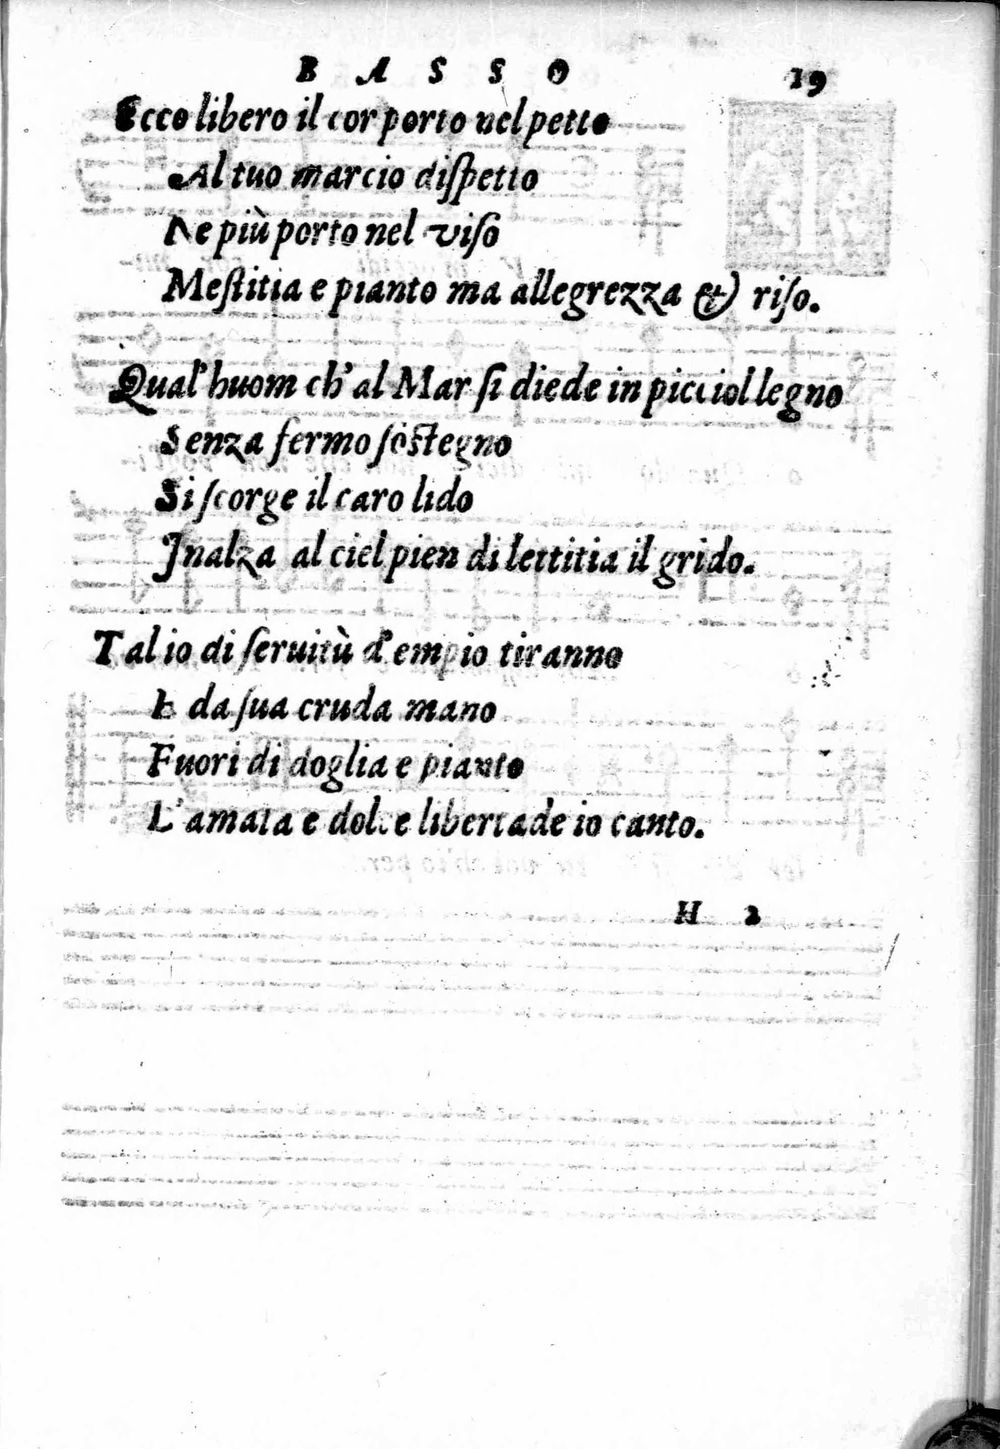 BASSO 19
Ecco libero il cor porto nel petto
Al tuo marcio diſpetto
Ne più porto nel viſo
Meſtitia e pianto ma allegrezza & riſo.
Qual'huom ch'al Mar ſi diede in picciol legno
Senza fermo ſoſtegno
Si ſcorge il caro lido
Inalza al ciel pien di lettitia il grido.
Tal io di ſeruitù d'empio tiranno
E da ſua cruda mano
Fuori di doglia e pianto
L'amata e dolce libertade io canto.
H 2